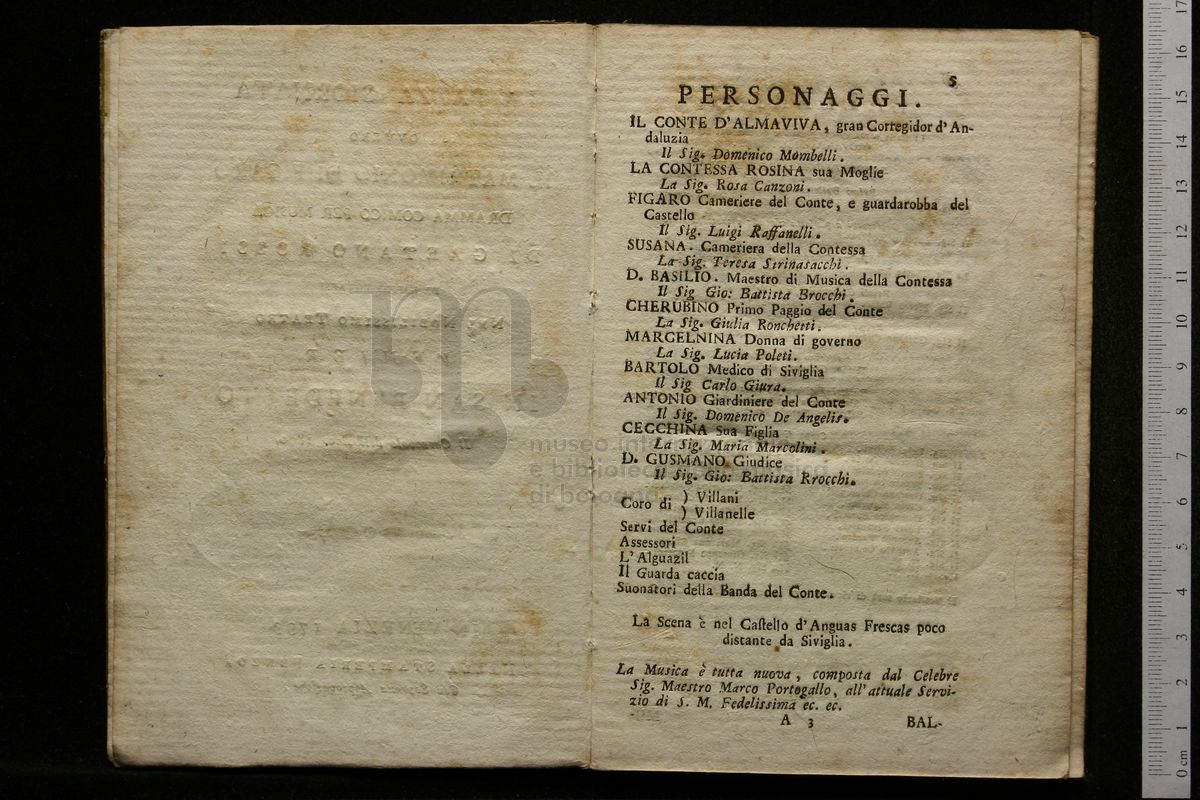 5
PERSONAGGI.
IL CONTE D'ALMAVIVA, gran Corregidor d'An-
daluzia
Il Sig. Domenico Mombelli.
LA CONTESSA ROSINA sua Moglie
La Sig. Rosa Canzoni.
FIGARO Cameriere del Conte, e guardarobba del
Castello
Il Sig. Luigi Raffanelli.
SUSANA. Cameriera della Contessa
La Sig. Teresa Strinasacchi.
D. BASILIO. Maestro di Musica della Contessa
Il Sig Gio: Battista Brocchi.
CHERUBINO Primo Paggio del Conte
La Sig. Giulia Ronchetti.
MARCELNINA Donna di governo
La Sig. Lucia Poleti.
BARTOLO Medico di Siviglia
Il Sig Carlo Giura.
ANTONIO Giardiniere del Conte
Il Sig. Domenico De Angelis.
CECCHINA Sua Figlia
La Sig. Maria Marcolini.
D. GUSMANO Giudice
Il Sig. Gio: Battista Rrocchi.
Coro di ) Villani
) Villanelle
Servi del Conte
Assessori
L'Alguazil
Il Guarda caccia
Suonatori della Banda del Conte.
La Scena è nel Castello d'Anguas Frescas poco
distante da Siviglia.
La Musica è tutta nuova, composta dal Celebre
Sig. Maestro Marco Portogallo, all'attuale Servi-
zio di S. M. Fedelissima ec. ec.
A 3 BAL-
museo
e bibliote
di bologna
0 cm 1 2 3 4 5 6 7 8 9 10 11 12 13 14 15 16 17